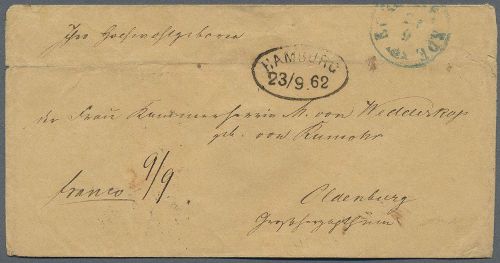 Ihro Hochwohlgeboren
HAMBURG
23/9.62
der Frau Kammerherrin M. von Wedderkop
geb. von Rumohr
franco 9/9.
Oldenburg
Großherzogthum